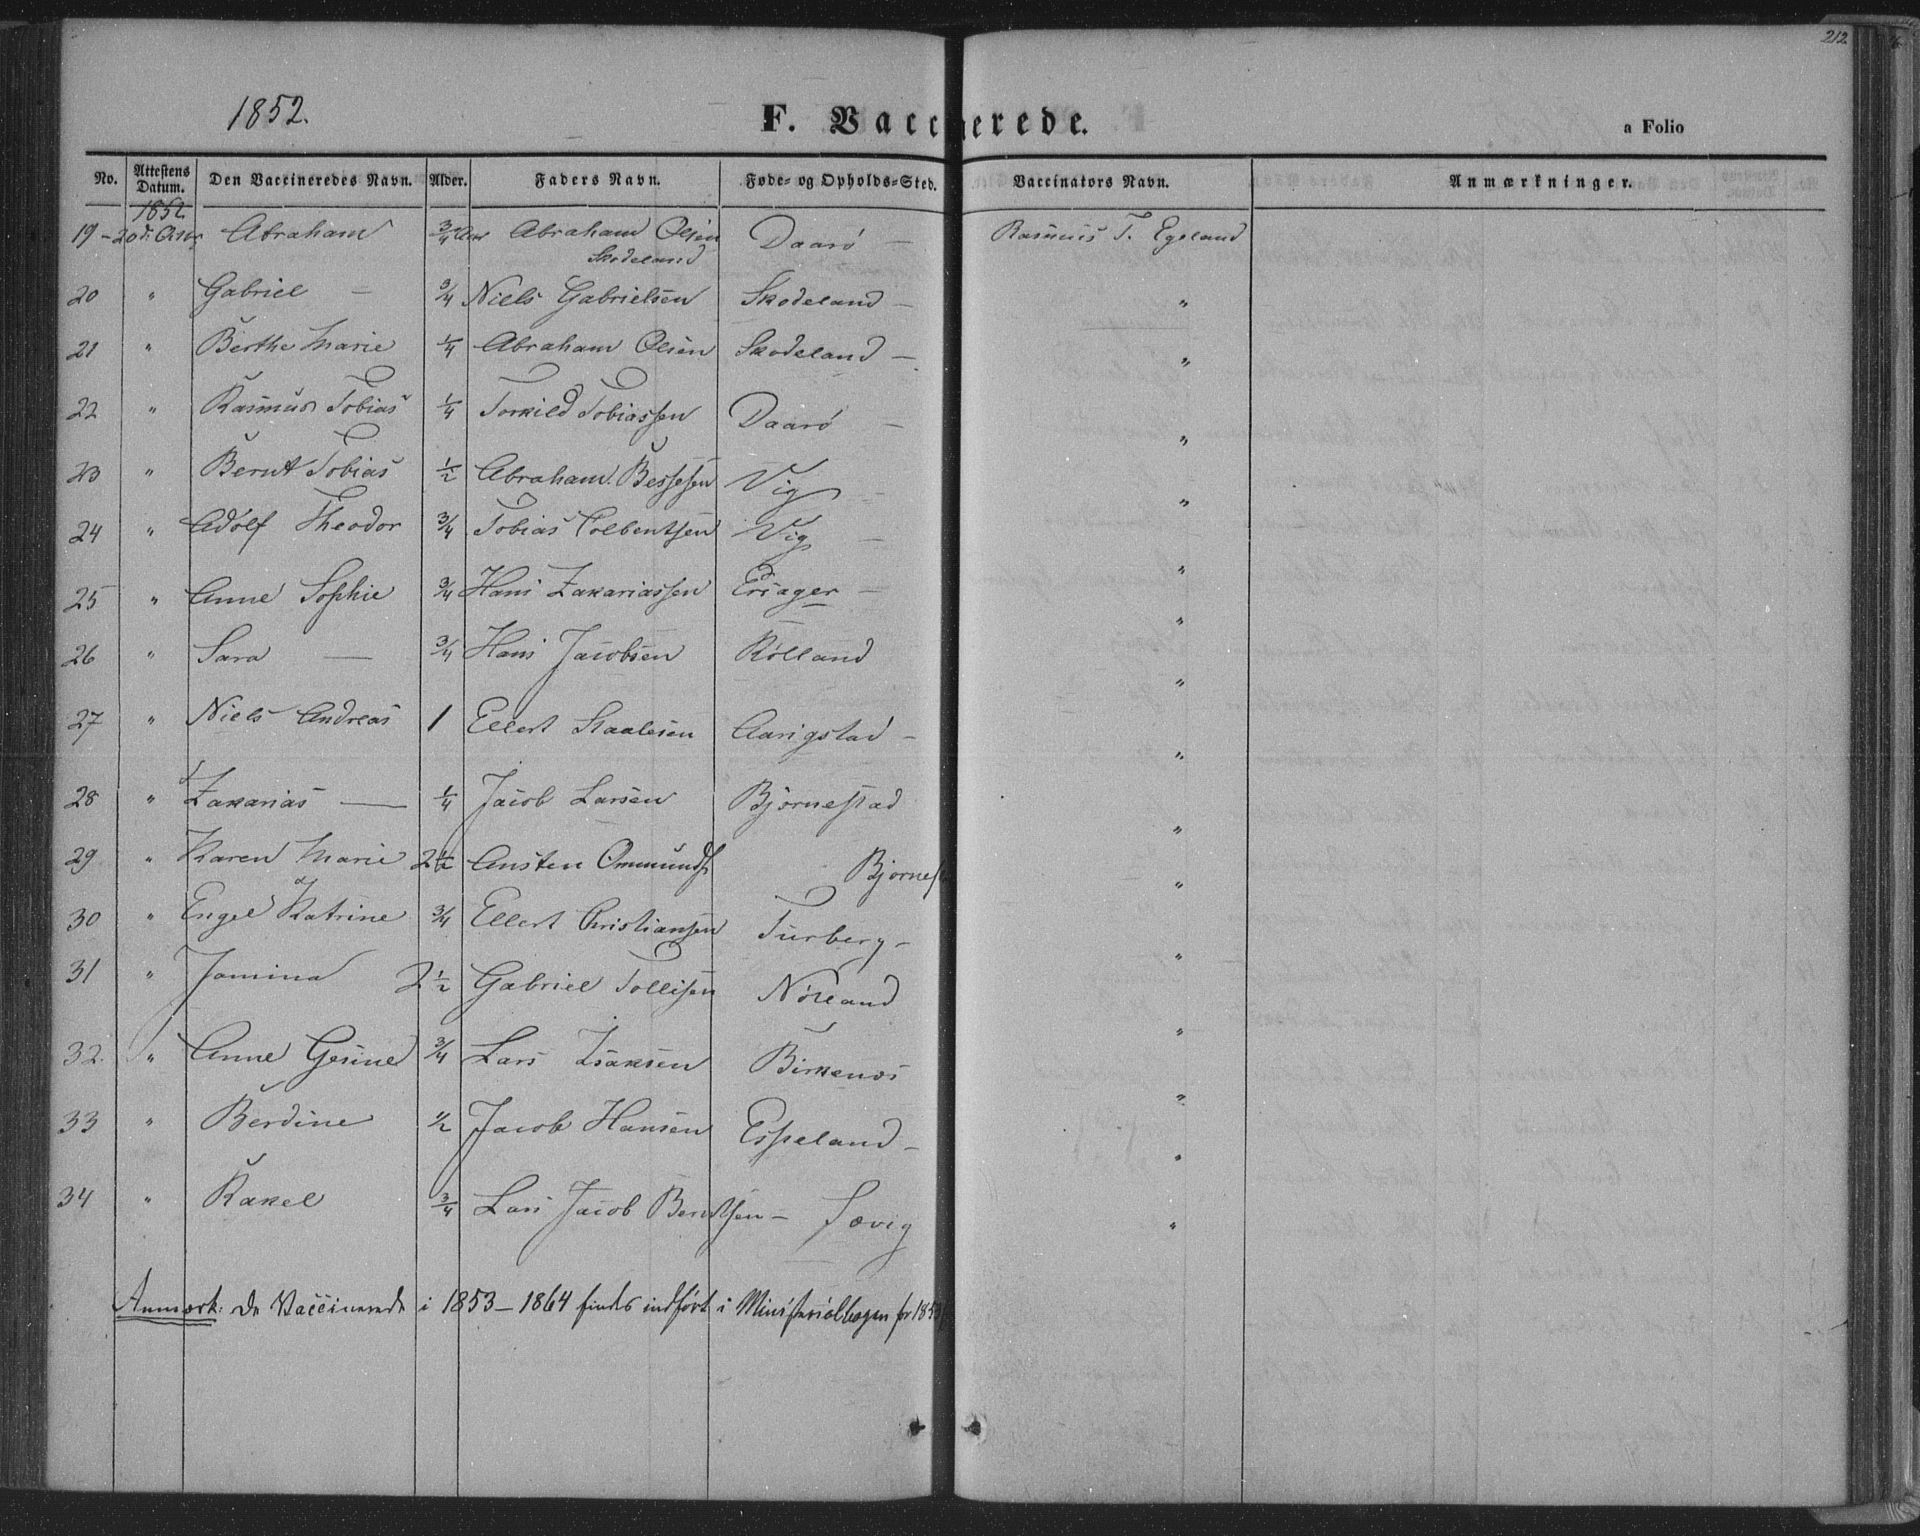 212
1852.
F. Vaccinerede.
a Folio
No. Attestens Datum. Den Vaccineredes Navn. Alder. Faders Navn. Føde- og Opholds-Sted. Vaccinators Navn. Anmærkninger.
1852
19 - 20d: Abraham 3/4 Aar Abraham Olsen Daarø — Rasmus T. Egeland
Skodeland
20 " Gabriel — 3/4 Niels Gabrielsen Skodeland — "
21 " Berthe Marie 1/4 Abraham Olsen Skodeland — "
22 " Rasmus Tobias 1/4 Torkild Tobiassen Daarø — "
23 " Bernt Tobias 1/2 Abraham Bessesen Vig — "
24 " Adolf Theodor 3/4 Tobias Colbentsen Vig — "
25 " Anne Sophie 3/4 Hans Zakariassen Eriager — "
26 " Sara — 3/4 Hans Jacobsen Rølland "
27 " Niels Andreas 1 Ellert Staalesen Aarigstad — "
28 " Zakarias — 1/4 Jacob Larsen Bjørnestad "
29 " Karen Marie 2 1/2 Ansten Ommunds Bjørnes "
30 " Engel Katrine 3/4 Ellert Christiansen Turberg — "
31 " Jomina 2 1/2 Gabriel Tollisen "
32. " Anne Gesine 3/4 Lars Isaksen Birkenæs "
33 " Berdine 1/2 Jacob Hansen Espeland — "
34 " Rakel 3/4 Lars Jacob Berntsen — Sævig "
Anmærk: De Vaccinerede i 1853 — 1864 findes indført i Ministerialbogen for 1853